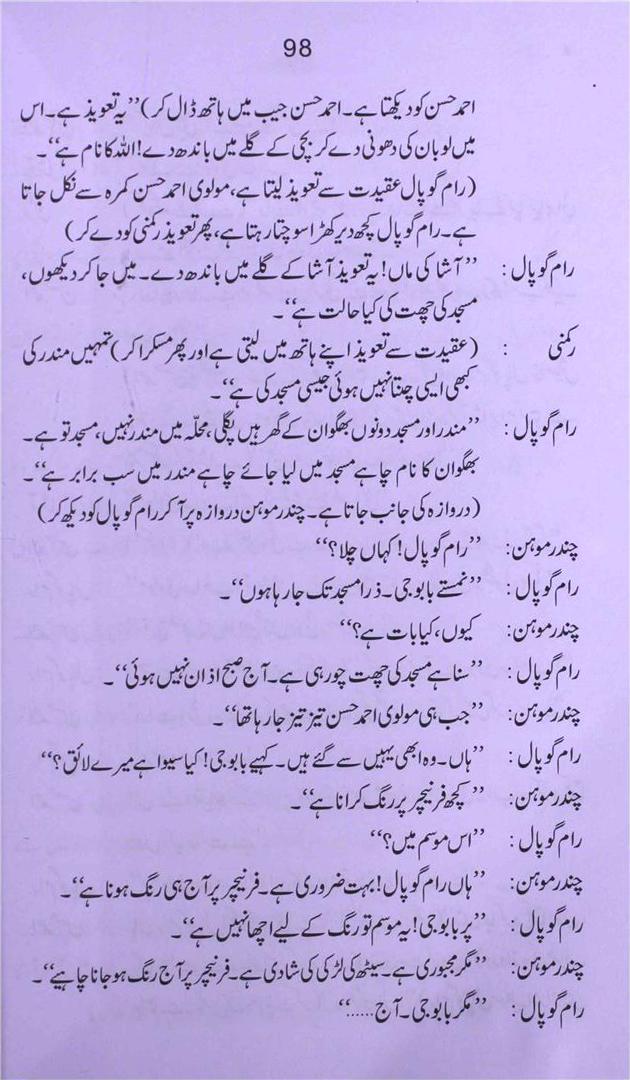 98
احمد حسن کو دیکھتا ہے۔ احمد حسن جیب میں ہاتھ ڈال کر) ’’یہ تعویذ ہے۔ اس
میں لوبان کی دھونی دے کر بچی کے گلے میں باندھ دے! اللہ کا نام ہے‘‘۔
(رام گوپال عقیدت سے تعویذ لیتا ہے، مولوی احمد حسن کمرہ سے نکل جاتا
ہے۔ رام گوپال کچھ دیر کھڑا سوچتا رہتا ہے، پھر تعویذ رکمنی کو دے کر)
رام گوپال : ’’آشا کی ماں! یہ تعویذ آشا کے گلے میں باندھ دے۔ میں جا کر دیکھوں،
مسجد کی چھت کی کیا حالت ہے‘‘۔
رکمنی : (عقیدت سے تعویذ اپنے ہاتھ میں لیتی ہے اور پھر مسکرا کر) تمہیں مندر کی
کبھی ایسی چنتا نہیں ہوئی جیسی مسجد کی ہے‘‘۔
رام گوپال : ’’مندر اور مسجد دونوں بھگوان کے گھر ہیں پگلی، محلّہ میں مندر نہیں، مسجد تو ہے۔
بھگوان کا نام چاہے مسجد میں لیا جائے چاہے مندر میں سب برابر ہے‘‘۔
(دروازہ کی جانب جاتا ہے۔ چندر موہن دروازہ پر آ کر رام گوپال کو دیکھ کر)
چندر موہن: ’’رام گوپال! کہاں چلا؟‘‘
رام گوپال : ’’نمستے بابو جی۔ ذرا مسجد تک جا رہا ہوں‘‘۔
چندر موہن: کیوں، کیا بات ہے؟‘‘
رام گوپال : ’’سنا ہے مسجد کی چھت چو رہی ہے۔ آج صبح اذان نہیں ہوئی‘‘۔
چندر موہن: ’’جب ہی مولوی احمد حسن تیز تیز جا رہا تھا‘‘۔
رام گوپال : ’’ہاں۔ وہ ابھی یہیں سے گئے ہیں۔ کہیے بابو جی! کیا سیوا ہے میرے لائق؟‘‘
چندر موہن: ’’کچھ فرنیچر پر رنگ کرانا ہے‘‘۔
رام گوپال : ’’اس موسم میں؟‘‘
چندر موہن: ’’ہاں رام گوپال! بہت ضروری ہے۔ فرنیچر پر آج ہی رنگ ہونا ہے‘‘۔
رام گوپال : ’’پر بابو جی! یہ موسم تو رنگ کے لیے اچھا نہیں ہے‘‘۔
چندر موہن: ’’مگر مجبوری ہے۔ سیٹھ کی لڑکی کی شادی ہے۔ فرنیچر پر آج رنگ ہو جانا چاہیے‘‘۔
رام گوپال : ’’مگر بابو جی۔ آج......‘‘